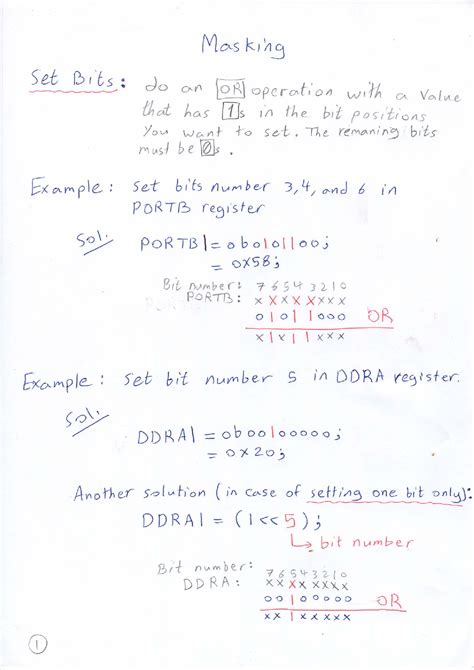 Masking
Set Bits: do an OR operation with a value
that has 1s in the bit positions
You want to set. The remaning bits
must be 0s.
Example: set bits number 3,4, and 6 in
PORTB register
Sol. PORTB|= 0b01011000;
= 0x58;
Bit number: 7 6 5 4 3 2 1 0
PORTB: x x x x x x x x
0 1 0 1 1 0 0 0 OR
x 1 x 1 1 x x x
Example: set bit number 5 in DDRA register.
Sol. DDRA|= 0b00100000;
= 0x20;
Another solution (in case of setting one bit only):
DDRA|= (1<<5);
bit number
Bit number: 7 6 5 4 3 2 1 0
DDRA: x x x x x x x x
0 0 1 0 0 0 0 0 OR
x x 1 x x x x x
1